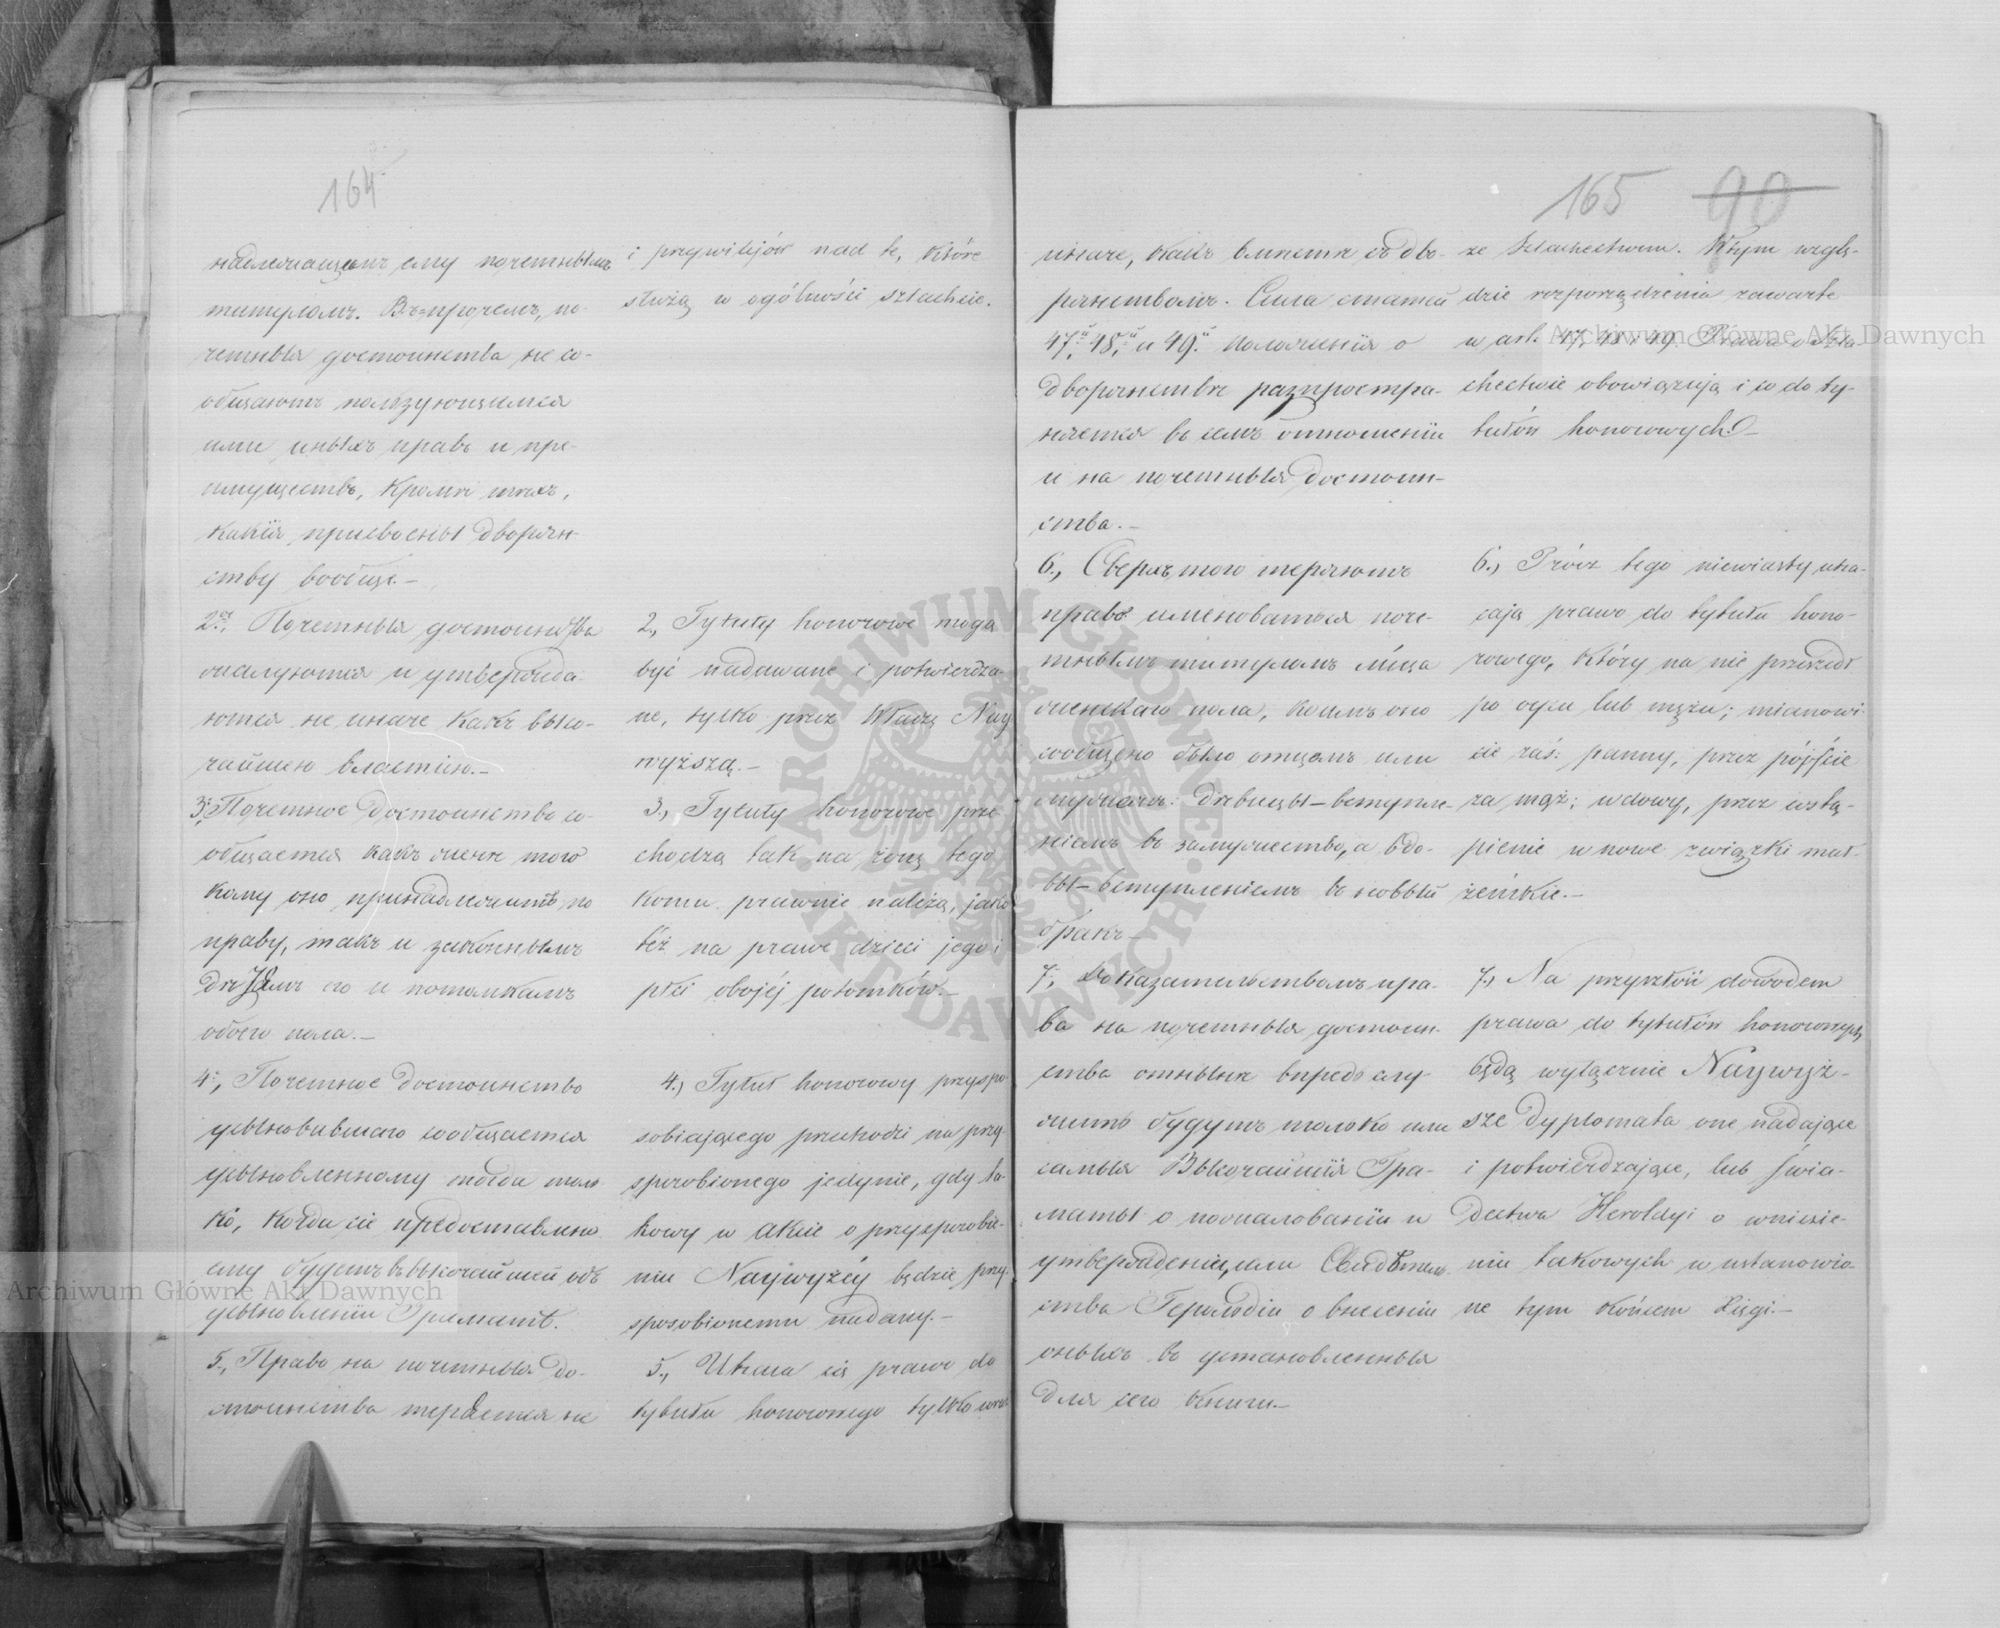 164
надлежащимъ ему почетнымъ
титуломъ. Въ-прочемъ, по-
четныя достоинства не со-
общаютъ пользующимся
ими иныхъ правъ и пре-
имуществъ, кромѣ тѣхъ,
какія присвоены дворян-
ству вообще.—
2., Почетныя достоинства
жалуются и утвержда-
ются не иначе какъ высо-
чайшею властію.—
3., Почетное достоинство со-
общается какъ женѣ того
кому оно принадлежитъ по
праву, такъ и законнымъ
дѣтямъ его и потомкамъ
обоего пола.—
4., Почетное достоинство
усыновившаго сообщается
усыновленному тогда толь
ко, когда сіе предоставлено
ему будетъ въ высочайшей объ
усыновленіи Грамотѣ.
5., Право на почетныя до-
стоинства теряется не
i przywilejów nad te, które
służą w ogólności szlachcie.
2., Tytuły honorowe mogą
być nadawane i potwierdza-
ne, tylko przez Władzę Nay
wyższą.—
3., Tytuły honorowe prze
chodzą tak na żonę tego
komu prawnie należą, jako
też na prawe dzieci jego i
płci obojéj potomków.—
4., Tytuł honorowy przyspo
sobiającego przechodzi na przy-
sposobionego jedynie, gdy ta-
kowy w akcie o przysposobie-
niu Naywyżéj będzie przy
sposobionemu nadany.—
5., Utraca się prawo do
tytułu honorowego tylko wraz
165 90
иначе, какъ вмѣстѣ съ дво-
рянствомъ. Сила статей
47.й, 48.й и 49.й Положенія о
дворянствѣ распростра-
няется въ семъ отношеніи
и на почетныя достоин-
ства.—
6., Сверхъ того теряютъ
право именоваться поче-
тнымъ титуломъ лица
женскаго пола, коимъ оно
сообщено было отцомъ или
мужемъ: дѣвицы—вступле-
ніемъ въ замужество, а вдо-
вы—вступленіемъ въ новый
бракъ—
7., Доказательствомъ пра-
ва на почетныя достоин-
ства отнынѣ впредь слу-
жить будутъ только или
самыя Высочайшія Гра-
маты о пожалованіи и
утвержденіи, или Свидѣтель
ства Герольдіи о внесеніи
оныхъ въ установленныя
для сего книги.—
ze Szlachectwem. W tym wzglę-
dzie rozporządzenia zawarte
w art. 47, 48 i 49 Prawa o Szla-
chectwie obowiązują i co do ty-
tułów honorowych.—
6., Prócz tego niewiasty utra-
cają prawo do tytułu hono-
rowego, który na nie przeszedł
po ojcu lub mężu; mianowi-
cie zaś: panny, przez pójście
za mąż; wdowy, przez wstą-
pienie w nowe związki mał-
żeńskie.—
7., Na przyszłość dowodem
prawa do tytułów honorowych
będą wyłącznie Naywyż-
sze dyplomata one nadające
i potwierdzające, lub świa-
dectwa Heroldyi o wniesie-
niu takowych w ustanowio-
ne tym końcem Xięgi.—
Archiwum Główne Akt Dawnych
Archiwum Główne Akt Dawnych
ARCHIWUM GŁÓWNE AKT DAWNYCH